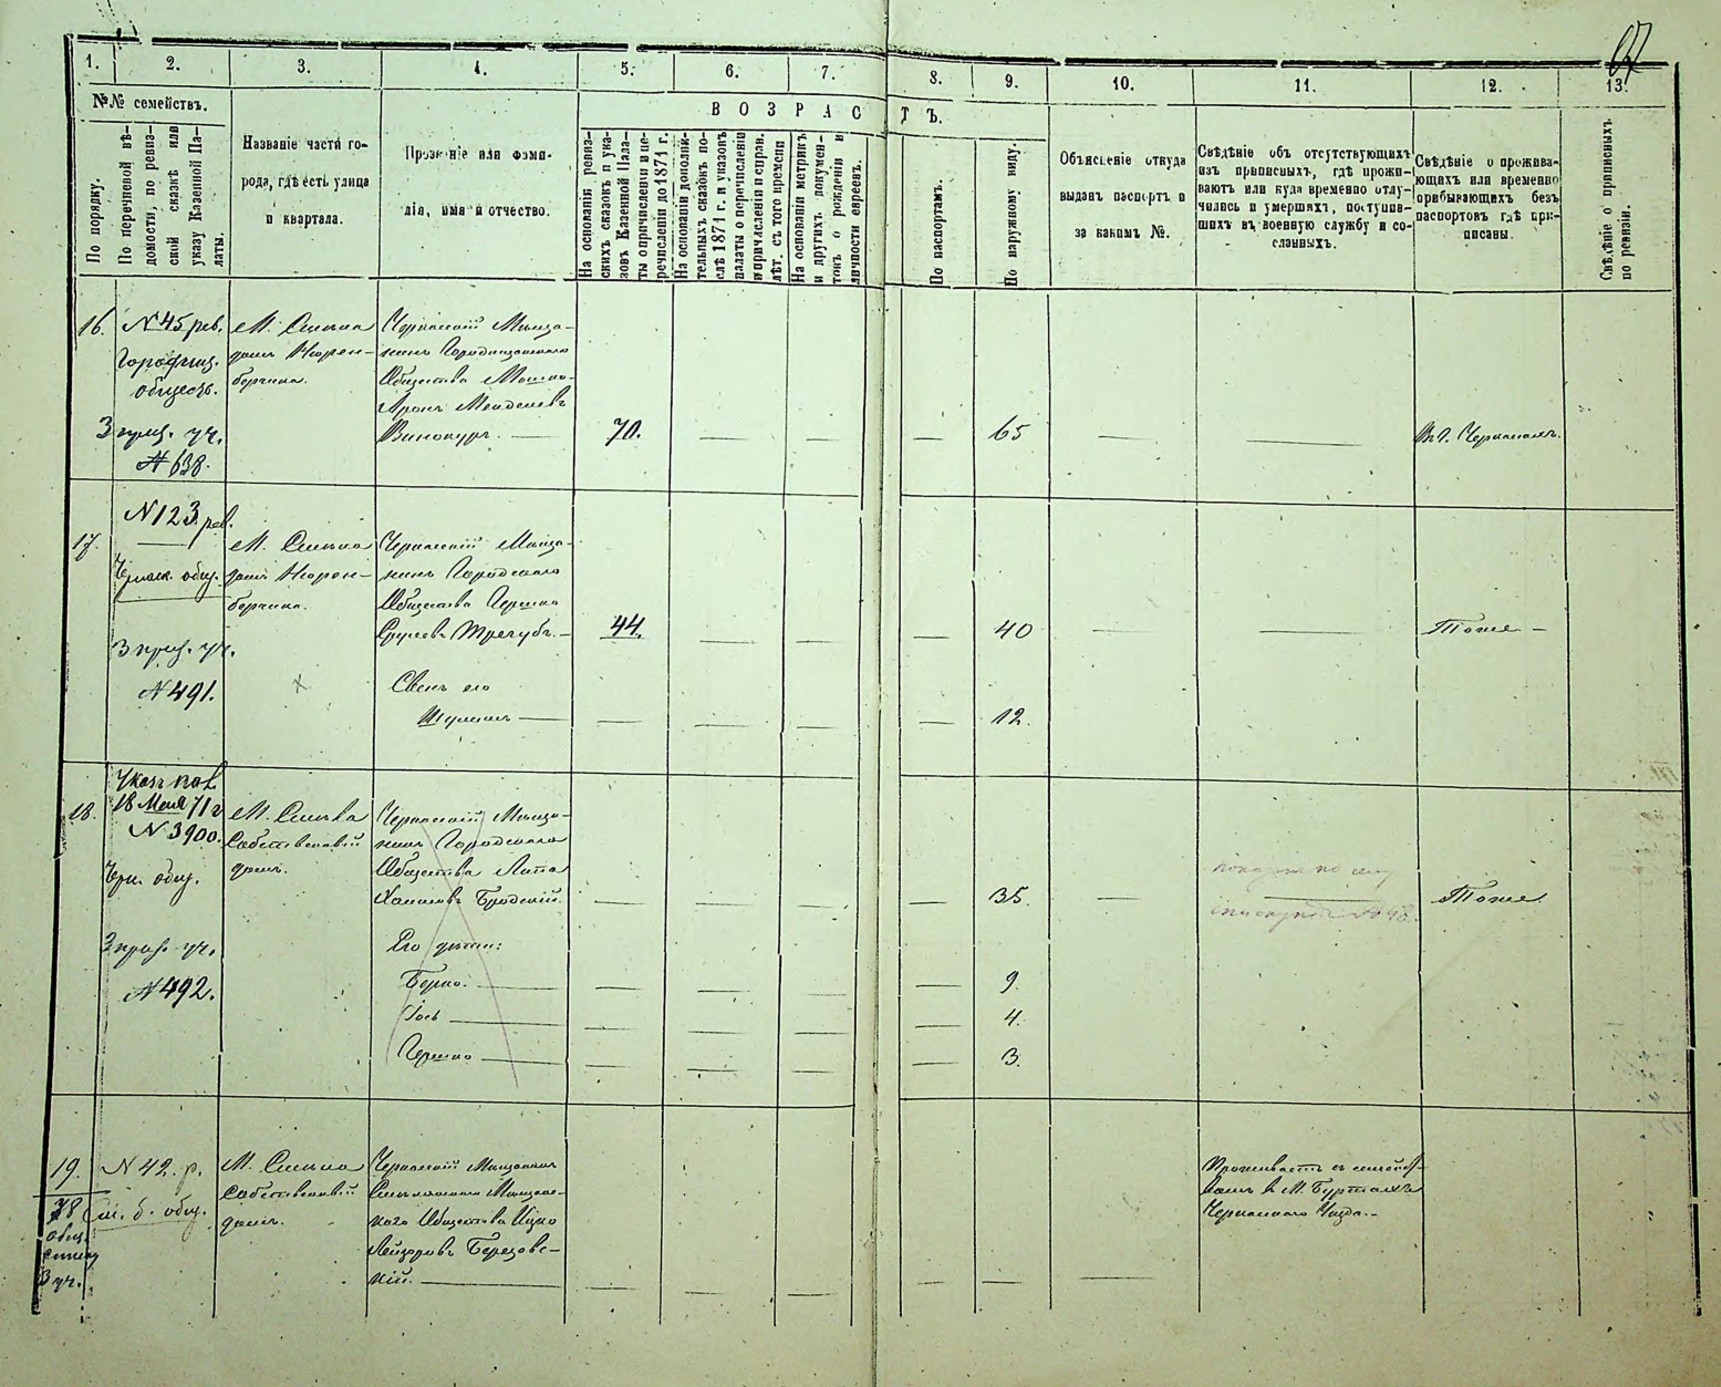 1.
2.
3.
4.
5.
6.
7.
8.
9.
10.
11.
12.
13.
№№ семействъ.
По порядку.
По перечневой вѣ-
домости, по ревиз-
ской сказкѣ или
указу Казенной Па-
латы.
Названіе части го-
рода, гдѣ есть улица
и квартала.
Прозваніе или фами-
лія, имя и отчество.
ВОЗРАСТЪ.
На основаніи ревиз-
скихъ сказокъ и ука-
зовъ Казенной Пала-
ты о причисленіи и пе-
речисленіи до 1871 г.
На основаніи дополни-
тельныхъ сказокъ по-
слѣ 1871 г. и указовъ
палаты о перечисленіи
и причисленіи и справ.
лѣт. съ того времени
На основаніи метрикъ
и другихъ докумен-
товъ о рожденіи и
личности евреевъ.
По паспортамъ.
По наружному виду.
Объясненіе откуда
выданъ паспортъ и
за какимъ №.
Свѣдѣніе объ отсутствующихъ
изъ приписныхъ, гдѣ прожи-
ваютъ или куда временно отлу-
чились и умершихъ, поступив-
шихъ въ военную службу и со-
сланныхъ.
Свѣдѣніе о прожива-
ющихъ или временно
прибывающихъ безъ
паспортовъ гдѣ при-
писаны.
Свѣдѣніе о приписныхъ
по ревизіи.
16.
N 45 рев.
Городищ.
общест.
3 приз. уч.
N 638.
М. Смѣла
домъ Нюрен-
бергина.
Черкаскій Мѣща-
нинъ Городищенскаго
Общества Мошко-
Аронъ Менделевъ
Винокуръ.
70.
65
Въ г. Черкасахъ.
17.
N 123 рев.
Черкаск. общ.
3 приз. уч.
N 491.
М. Смѣла
домъ Нюрен-
бергина.
Черкаскій Мѣща-
нинъ Городскаго
Общества Гершко
Срулевъ Трегубъ.
44.
40
Тоже
Сынъ его
Шулимъ
12.
18.
Указъ каз.
18 Мая 71 г
N 3900.
Чер. общ.
3 приз. уч.
N 492.
М. Смѣла
Собственный
домъ.
Черкаскій Мѣща-
нинъ Городскаго
Общества Липа
Хаимовъ Бродскій.
35.
Тоже
Его дѣти:
Берко.
9.
Іось
4.
Гершко
3.
19.
78
общ.
списку
3 уч.
N 42. р.
См. б. общ.
М. Смѣла
Собственный
домъ.
Черкаскій Мѣщанинъ
Смѣлянскаго Мѣщанс-
каго Общества Ицко
Лейзеровъ Березовс-
кій.
Проживаетъ съ семейст-
вомъ в М. Буртахъ
Черкаскаго Уѣзда.